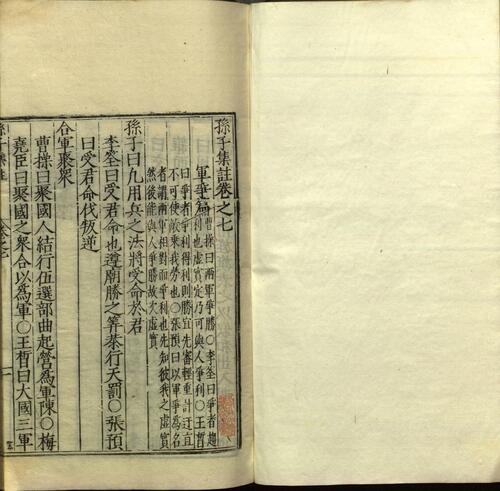 孫子集註卷之七
軍爭篇
曹操曰兩軍爭勝○李筌曰爭者趨
利也虛實定乃可與人爭利○王晳
曰爭者爭利得利則勝宜先審輕重計迂直
不可使敵乘我勞也○張預曰以軍爭為名
者謂兩軍相對而爭利也先知彼我之虛實
然後能與人爭勝故次虛實
孫子曰凡用兵之法將受命於君
李筌曰受君命也遵廟勝之筭恭行天罰○張預
曰受君命伐叛逆
合軍聚眾
曹操曰聚國人結行伍選部曲起營為軍陳○梅
堯臣曰聚國之眾合以為軍○王晳曰大國三軍
孫子集註
卷之七
一